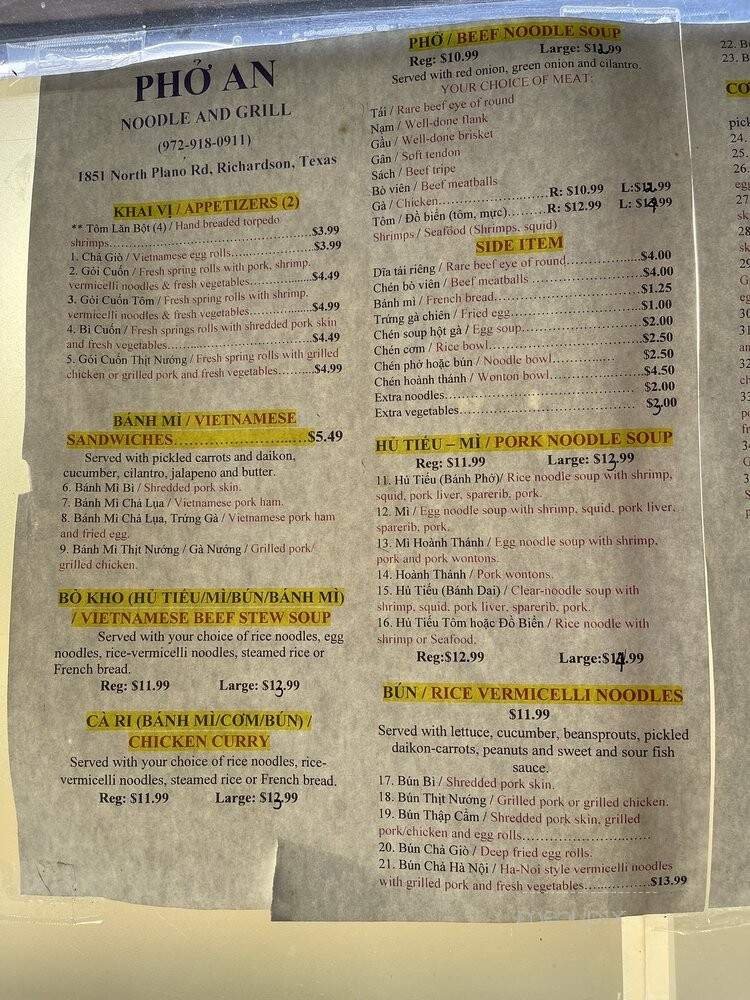 PHỞ AN
NOODLE AND GRILL
(972-918-0911)
1851 North Plano Rd, Richardson, Texas
KHAI VỊ / APPETIZERS (2)
** Tôm Lăn Bột (4) / Hand breaded torpedo
shrimps....................................................$3.99
1. Chả Giò / Vietnamese egg rolls.....................$3.99
2. Gỏi Cuốn / Fresh spring rolls with pork, shrimp,
vermicelli noodles & fresh vegetables.................$4.49
3. Gỏi Cuốn Tôm / Fresh spring rolls with shrimp,
vermicelli noodles & fresh vegetables.................$4.99
4. Bì Cuốn / Fresh springs rolls with shredded pork skin
and fresh vegetables.......................................$4.49
5. Gỏi Cuốn Thịt Nướng / Fresh spring rolls with grilled
chicken or grilled pork and fresh vegetables.........$4.99
BÁNH MÌ / VIETNAMESE
SANDWICHES..............................$5.49
Served with pickled carrots and daikon,
cucumber, cilantro, jalapeno and butter.
6. Bánh Mì Bì / Shredded pork skin.
7. Bánh Mì Chả Lụa / Vietnamese pork ham.
8. Bánh Mì Chả Lụa, Trứng Gà / Vietnamese pork ham
and fried egg.
9. Bánh Mì Thịt Nướng / Gà Nướng / Grilled pork/
grilled chicken.
BÒ KHO (HỦ TIẾU/MÌ/BÚN/BÁNH MÌ)
/ VIETNAMESE BEEF STEW SOUP
Served with your choice of rice noodles, egg
noodles, rice-vermicelli noodles, steamed rice or
French bread.
Reg: $11.99 Large: $13.99
CÀ RI (BÁNH MÌ/CƠM/BÚN) /
CHICKEN CURRY
Served with your choice of rice noodles, rice-
vermicelli noodles, steamed rice or French bread.
Reg: $11.99 Large: $13.99
PHỞ / BEEF NOODLE SOUP
Reg: $10.99 Large: $12.99
Served with red onion, green onion and cilantro.
YOUR CHOICE OF MEAT:
Tái / Rare beef eye of round
Nạm / Well-done flank
Gầu / Well-done brisket
Gân / Soft tendon
Sách / Beef tripe
Bò viên / Beef meatballs
Gà / Chicken...........................R: $10.99 L:$12.99
Tôm / Đồ biển (tôm, mực)........R: $12.99 L: $14.99
Shrimps / Seafood (Shrimps, squid)
SIDE ITEM
Dĩa tái riêng / Rare beef eye of round....................$4.00
Chén bò viên / Beef meatballs ............................$4.00
Bánh mì / French bread......................................$1.25
Trứng gà chiên / Fried egg.................................$1.00
Chén soup hột gà / Egg soup..............................$2.00
Chén cơm / Rice bowl.......................................$2.50
Chén phở hoặc bún / Noodle bowl................ $2.50
Chén hoành thánh / Wonton bowl......................$4.50
Extra noodles................................................. $2.00
Extra vegetables............................................. $3.00
HỦ TIẾU – MÌ / PORK NOODLE SOUP
Reg: $11.99 Large: $13.99
11. Hủ Tiếu (Bánh Phở)/ Rice noodle soup with shrimp,
squid, pork liver, sparerib, pork.
12. Mì / Egg noodle soup with shrimp, squid, pork liver,
sparerib, pork.
13. Mì Hoành Thánh / Egg noodle soup with shrimp,
pork and pork wontons.
14. Hoành Thánh / Pork wontons.
15. Hủ Tiếu (Bánh Dai) / Clear-noodle soup with
shrimp, squid, pork liver, sparerib, pork.
16. Hủ Tiếu Tôm hoặc Đồ Biển / Rice noodle with
shrimp or Seafood.
Reg:$12.99 Large:$14.99
BÚN / RICE VERMICELLI NOODLES
$11.99
Served with lettuce, cucumber, beansprouts, pickled
daikon-carrots, peanuts and sweet and sour fish
sauce.
17. Bún Bì / Shredded pork skin.
18. Bún Thịt Nướng / Grilled pork or grilled chicken.
19. Bún Thập Cẩm / Shredded pork skin, grilled
pork/chicken and egg rolls..............................
20. Bún Chả Giò / Deep fried egg rolls.
21. Bún Chả Hà Nội / Ha-Noi style vermicelli noodles
with grilled pork and fresh vegetables................$13.99
22. B
23. B
CƠ
pick
24.
25.
26.
egg
27.
sk
28
sk
29
G
eg
30
31
an
32
ch
33